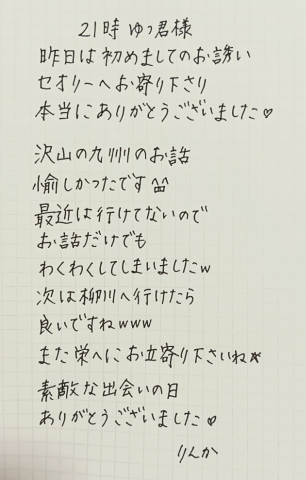 21時 ゆっ君様
昨日は初めましてのお誘い
セオリーへお寄り下さり
本当にありがとうございました♡
沢山の九州のお話
愉しかったです^^
最近は行けてないので
お話だけでも
わくわくしてしまいましたw
次は柳川へ行けたら
良いですねwww
また栄へにお立寄り下さいね☆
素敵な出会いの日
ありがとうございました♡
りんか